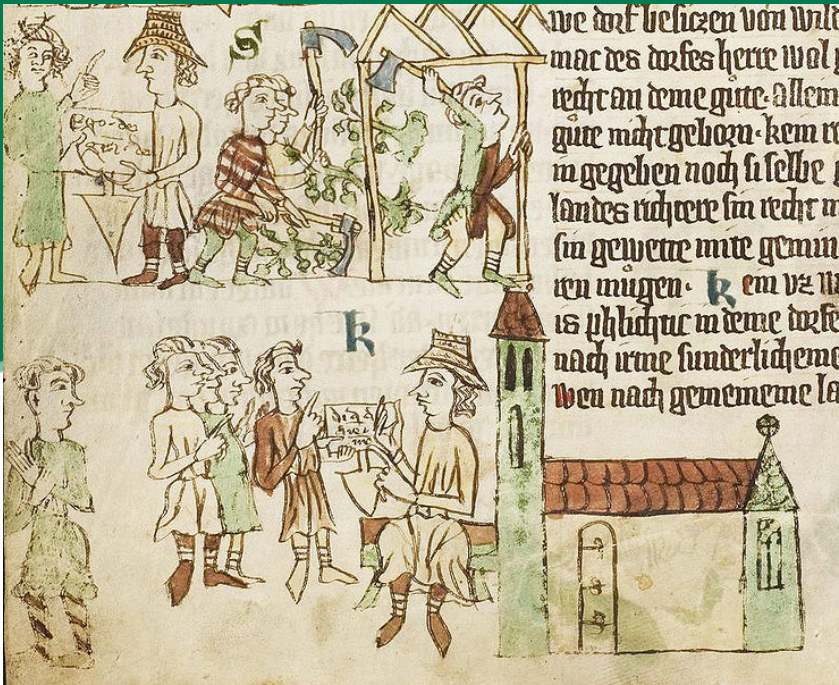 S
Ego·de
gri·de
we dorf besiczen von wild
mac des dorfes herre wol
recht an deme gute· allem
gute nicht geborn· kem
in gegeben noch si selbe
landes richtere sin recht
sin gewette mite gemin
ren mugen· k em vz
is phlichtic in deme dorfe
nach irme sunderlicheme
wen nach gemeineme la
k